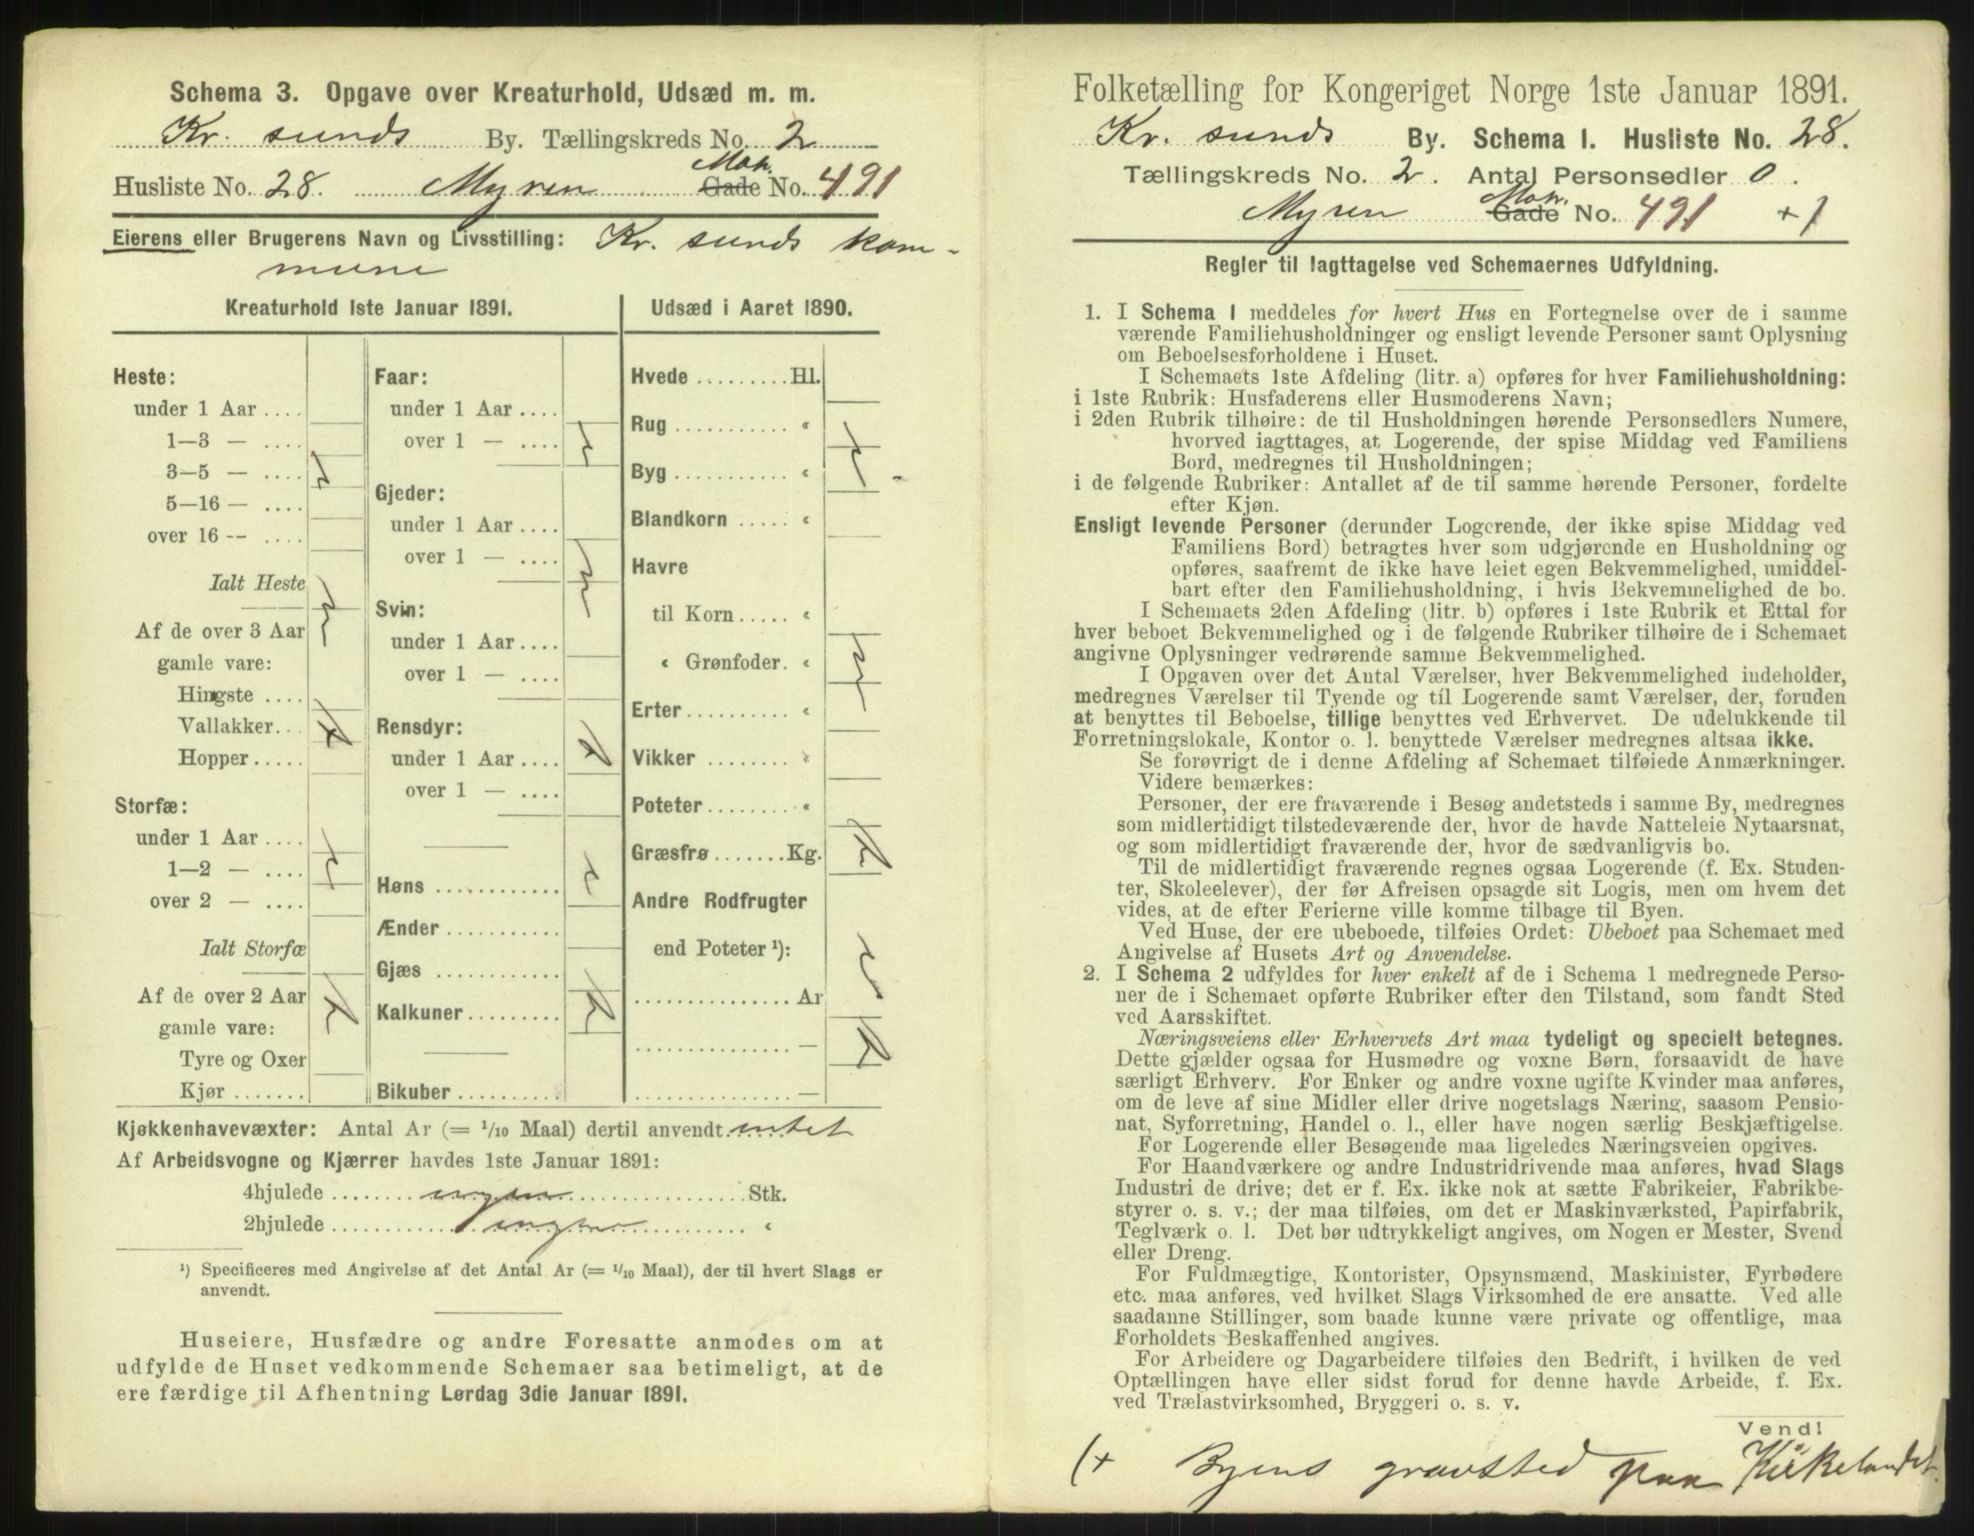 Schema 3. Opgave over Kreaturhold, Udsæd m. m.
Kr. sunds By. Tællingskreds No. 2
Husliste No. 28. Myren Gade Matr. No. 491
Eierens eller Brugerens Navn og Livsstilling: Kr. sunds kom-
mune
Kreaturhold 1ste Januar 1891.
Heste:
under 1 Aar ....
1—3 — ....
3—5 — ....
5—16 — ....
over 16 — ....
Ialt Heste
Af de over 3 Aar
gamle vare:
Hingste ....
Vallakker...
Hopper.....
Storfæ:
under 1 Aar ....
1—2 — ....
over 2 — ....
Ialt Storfæ
Af de over 2 Aar
gamle vare:
Tyre og Oxer
Kjør .......
Faar:
under 1 Aar ....
over 1 — ....
Gjeder:
under 1 Aar ....
over 1 — ....
Svin:
under 1 Aar ....
over 1 — ....
Rensdyr:
under 1 Aar ....
over 1 — ....
Høns ............
Ænder ...........
Gjæs ............
Kalkuner.........
Bikuber ..........
Udsæd i Aaret 1890.
Hvede .........Hl.
Rug ........... «
Byg ........... «
Blandkorn ..... «
Havre
til Korn..... «
« Grønfoder. «
Erter .......... «
Vikker ........ «
Poteter ........ «
Græsfrø .......Kg.
Andre Rodfrugter
end Poteter ¹):
............... Ar
............... —
............... —
Kjøkkenhavevæxter: Antal Ar (= 1/10 Maal) dertil anvendt intet
Af Arbeidsvogne og Kjærrer havdes 1ste Januar 1891:
4hjulede ........ ingen ........ Stk.
2hjulede ........ ingen ........ «
¹) Specificeres med Angivelse af det Antal Ar (= 1/10 Maal), der til hvert Slags er
anvendt.
Huseiere, Husfædre og andre Foresatte anmodes om at
udfylde de Huset vedkommende Schemaer saa betimeligt, at de
ere færdige til Afhentning Lørdag 3die Januar 1891.
Folketælling for Kongeriget Norge 1ste Januar 1891.
Kr. sunds By. Schema I. Husliste No. 28.
Tællingskreds No. 2. Antal Personsedler 0.
Myren Gade Matr. No. 491 +1
Regler til Iagttagelse ved Schemaernes Udfyldning.
1. I Schema I meddeles for hvert Hus en Fortegnelse over de i samme
værende Familiehusholdninger og ensligt levende Personer samt Oplysning
om Beboelsesforholdene i Huset.
I Schemaets 1ste Afdeling (litr. a) opføres for hver Familiehusholdning:
i 1ste Rubrik: Husfaderens eller Husmoderens Navn;
i 2den Rubrik tilhøire: de til Husholdningen hørende Personsedlers Numere,
hvorved iagttages, at Logerende, der spise Middag ved Familiens
Bord, medregnes til Husholdningen;
i de følgende Rubriker: Antallet af de til samme hørende Personer, fordelte
efter Kjøn.
Ensligt levende Personer (derunder Logerende, der ikke spise Middag ved
Familiens Bord) betragtes hver som udgjørende en Husholdning og
opføres, saafremt de ikke have leiet egen Bekvemmelighed, umiddel-
bart efter den Familiehusholdning, i hvis Bekvemmelighed de bo.
I Schemaets 2den Afdeling (litr. b) opføres i 1ste Rubrik et Ettal for
hver beboet Bekvemmelighed og i de følgende Rubriker tilhøire de i Schemaet
angivne Oplysninger vedrørende samme Bekvemmelighed.
I Opgaven over det Antal Værelser, hver Bekvemmelighed indeholder,
medregnes Værelser til Tyende og til Logerende samt Værelser, der, foruden
at benyttes til Beboelse, tillige benyttes ved Erhvervet. De udelukkende til
Forretningslokale, Kontor o. l. benyttede Værelser medregnes altsaa ikke.
Se forøvrigt de i denne Afdeling af Schemaet tilføiede Anmærkninger.
Videre bemærkes:
Personer, der ere fraværende i Besøg andetsteds i samme By, medregnes
som midlertidigt tilstedeværende der, hvor de havde Natteleie Nytaarsnat,
og som midlertidigt fraværende der, hvor de sædvanligvis bo.
Til de midlertidigt fraværende regnes ogsaa Logerende (f. Ex. Studen-
ter, Skoleelever), der før Afreisen opsagde sit Logis, men om hvem det
vides, at de efter Ferierne ville komme tilbage til Byen.
Ved Huse, der ere ubeboede, tilføies Ordet: Ubeboet paa Schemaet med
Angivelse af Husets Art og Anvendelse.
2. I Schema 2 udfyldes for hver enkelt af de i Schema 1 medregnede Perso-
ner de i Schemaet opførte Rubriker efter den Tilstand, som fandt Sted
ved Aarsskiftet.
Næringsveiens eller Erhvervets Art maa tydeligt og specielt betegnes.
Dette gjælder ogsaa for Husmødre og voxne Børn, forsaavidt de have
særligt Erhverv. For Enker og andre voxne ugifte Kvinder maa anføres,
om de leve af sine Midler eller drive nogetslags Næring, saasom Pensio-
nat, Syforretning, Handel o. l., eller have nogen særlig Beskjæftigelse.
For Logerende eller Besøgende maa ligeledes Næringsveien opgives.
For Haandværkere og andre Industridrivende maa anføres, hvad Slags
Industri de drive; det er f. Ex. ikke nok at sætte Fabrikeier, Fabrikbe-
styrer o. s. v.; der maa tilføies, om det er Maskinværksted, Papirfabrik,
Teglværk o. l. Det bør udtrykkeligt angives, om Nogen er Mester, Svend
eller Dreng.
For Fuldmægtige, Kontorister, Opsynsmænd, Maskinister, Fyrbødere
etc. maa anføres, ved hvilket Slags Virksomhed de ere ansatte. Ved alle
saadanne Stillinger, som baade kunne være private og offentlige, maa
Forholdets Beskaffenhed angives.
For Arbeidere og Dagarbeidere tilføies den Bedrift, i hvilken de ved
Optællingen have eller sidst forud for denne havde Arbeide, f. Ex.
ved Trælastvirksomhed, Bryggeri o. s. v.
Vend!
(+ Byens gravsted paa Kirkelandet